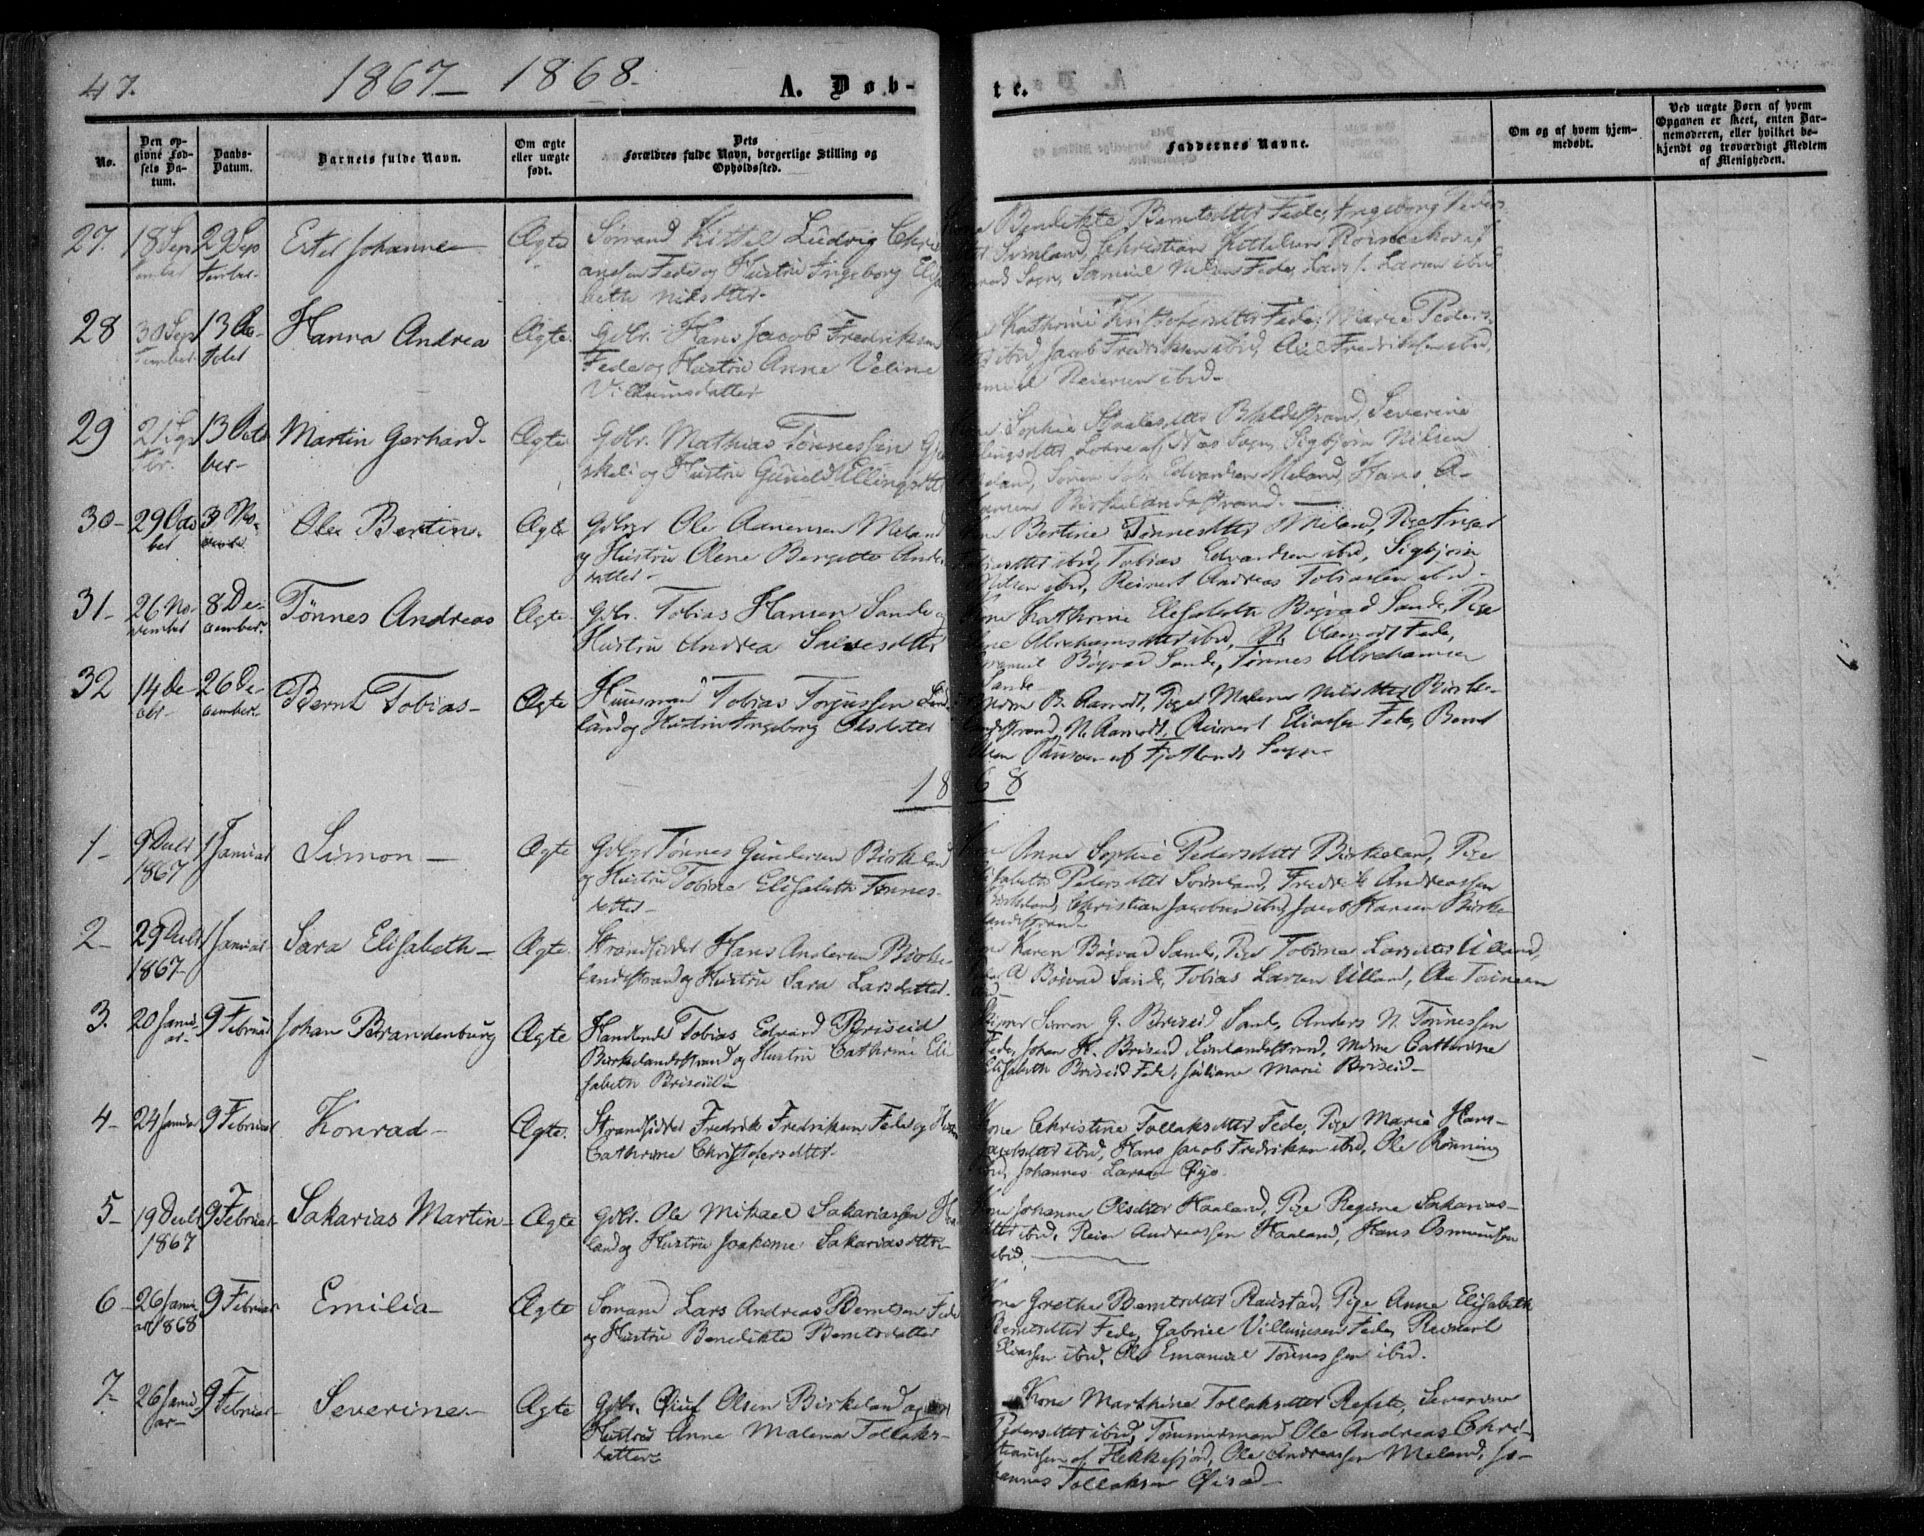 47.
1867 – 1868.
A. Døb-
te.
No.
Den op-
givne Fød-
sels Da-
tum.
Daabs-
Datum.
Barnets fulde Navn.
Om ægte
eller uægte
født.
Dets
Forældres fulde Navn, borgerlige Stilling og
Opholdssted.
Faddernes Navne.
Om og af hvem hjem-
medøbt.
Ved uægte Børn af hvem
Opgaven er skeet, enten Bar-
nemoderen, eller hvilket be-
kjendt og troværdigt Medlem
af Menigheden.
27. 18 Sep 29 Sep Ester Johanne Ægte Sømand Kittel Ludvig Chri
tember tember ansen Fede og Hustru Ingeborg Elisa
beth Nilsdtter
Bendikte Berntsdtter Fede, Ingeborg Peders
Svinland, Christian Kittelsen
Sogn, Samuel Nilsen Fede, Lars Larsen ibid
28 30 Sep 13 Oc- Hanna Andrea Ægte. Gdbr. Hans Jacob Fredriksen
tember tober Fede og Hustru Anne Veline
Villumsdatter
Kathrine Kristofersdtter Fede, Marie Peders
ibid, Jacob Fredriksen ibid, Fredriksen ibid,
Reiersen ibid
29 21 Sep 13 Octo Martin Gerhard Ægte Gdbr. Mathias Tønnessen
ber og Hustru Gunild Ellingsdtter
Sophie Staalesdtter Severine
Ellingsdtter af Næs Sogn, Sigbjørn Nilsen
Meland, Søren Edvardsen Meland, Hans A-
Birkelandsstrand.
30 – 29 Octo 3 No- Ole Bertin Ægte Gdbgr Ole Aanensen Meland
ber vember og Hustru Olene Bergitte Anders
datter
Bertine Tønnesdtter Meland, Pige Inger
ibid, Tobias Edvardsen ibid, Sigbjørn
Nilsen ibid, Reinert Andreas Tobiassen ibid
31 – 26 No- 8 De- Tønnes Andreas Ægte Gdbr. Tobias Hansen Sande og
vember cember Hustru Andrea Salvesdtter
Kone Kathrine Elisabeth Bøgvad Sande, Pige
Abrahamsdtter ibid, N. Aamodt Fede,
Bøgvad Sande, Tønnes Abrahamsen
Sande
32 14 De- 26 De- Bernt Tobias – Ægte Huusmand Tobias Torjussen
cbr cember land og Hustru Ingeborg Olsdatter
Mdm B. Aamodt, Pige Malene Nilsdtter Birke-
landsstrand, N. Aamodt, Reinert Eliassen Fede, Bernt
Olsen af Fjotlands Sogn
1868
1 – 9 Decbr 1 Januar Simon – Ægte Gdbgr Tønnes Gundersen Birkeland
1867 og Hustru Tobine Elisabeth Tønnes-
datter
Anne Sophie Pedersdtter Birkeland, Pige
Elisabeth Pedersdtter Svinland, Fredrik Andreassen
Birkeland, Christian Jacobsen ibid, Jacob Hansen Birke
landsstrand
2 – 29 Decbr 1 Januar Sara Elisabeth – Ægte Strandsidder Hans Andersen Birke-
1867 landsstrand og Hustru Sara Larsdatter.
Karen Bøgvad Sande, Pige Tobine Larsdtter Ulland,
A Bøgvad Sande, Tobias Larsen Ulland,
ibid
3. 20 Janu- 9 Februar Johan Brandenburg Ægte Handlende Tobias Edvard Briseid
ar Birkelandsstrand og Hustru Cathrine Eli
sabeth Briseid
Simon G. Briseid Sande, Anders N. Tønnessen
Fede, Johan H. Briseid Svinlandsstrand, Mdme Catthrine
Elisabeth Briseid Fede, Juliane Marie Briseid –
4 – 24 Januar 9 Februar Konrad – Ægte. Strandsidder Fredrik Fredriksen Fede og Hustru
Cathrine Christofersdtter
Kone Christine Tollaksdtter Fede, Pige Marie Hans-
ibid, Hans Jacob Fredriksen ibid, Ole Rønning
ibid, Johannes Larsen Øye.
5 – 19 Decbr 9 Februar Sakarias Martin – Ægte Gdbr. Ole Mikael Sakariassen Haa
1867 land og Hustru Joakime Sakariasdtter
Kone Johanne Olsdtter Haaland, Pige Regine Sakarias-
dtter ibid, Reier Andreassen Haaland, Hans Osmundsen
ibid.
6 – 26 Janu 9 Februar Emilia – Ægte Sømand Lars Andreas Berntsen Fede
ar 1868 og Hustru Benedikte Berntsdatter
Kone Grethe Berntsdtter Raustad, Pige Anne Elisabeth
Berntsdtter Fede, Gabriel Villumsen Fede, Reinert
Eliassen ibid, Ole Emanuel Tønnessen ibid.
7 – 26 Janu 9 Februar Severine – Ægte Gdbr. Olsen Birkeland og
ar Hustru Anne Malena Tollaks-
datter
Kone Marthine Tollaksdtter Refste, Severine
Pedersdtter ibid, Tømmermand Ole Andreas Chri-
stiansen af Flekkefjord, Ole Andreassen Meland, Jo-
hannes Tollaksen